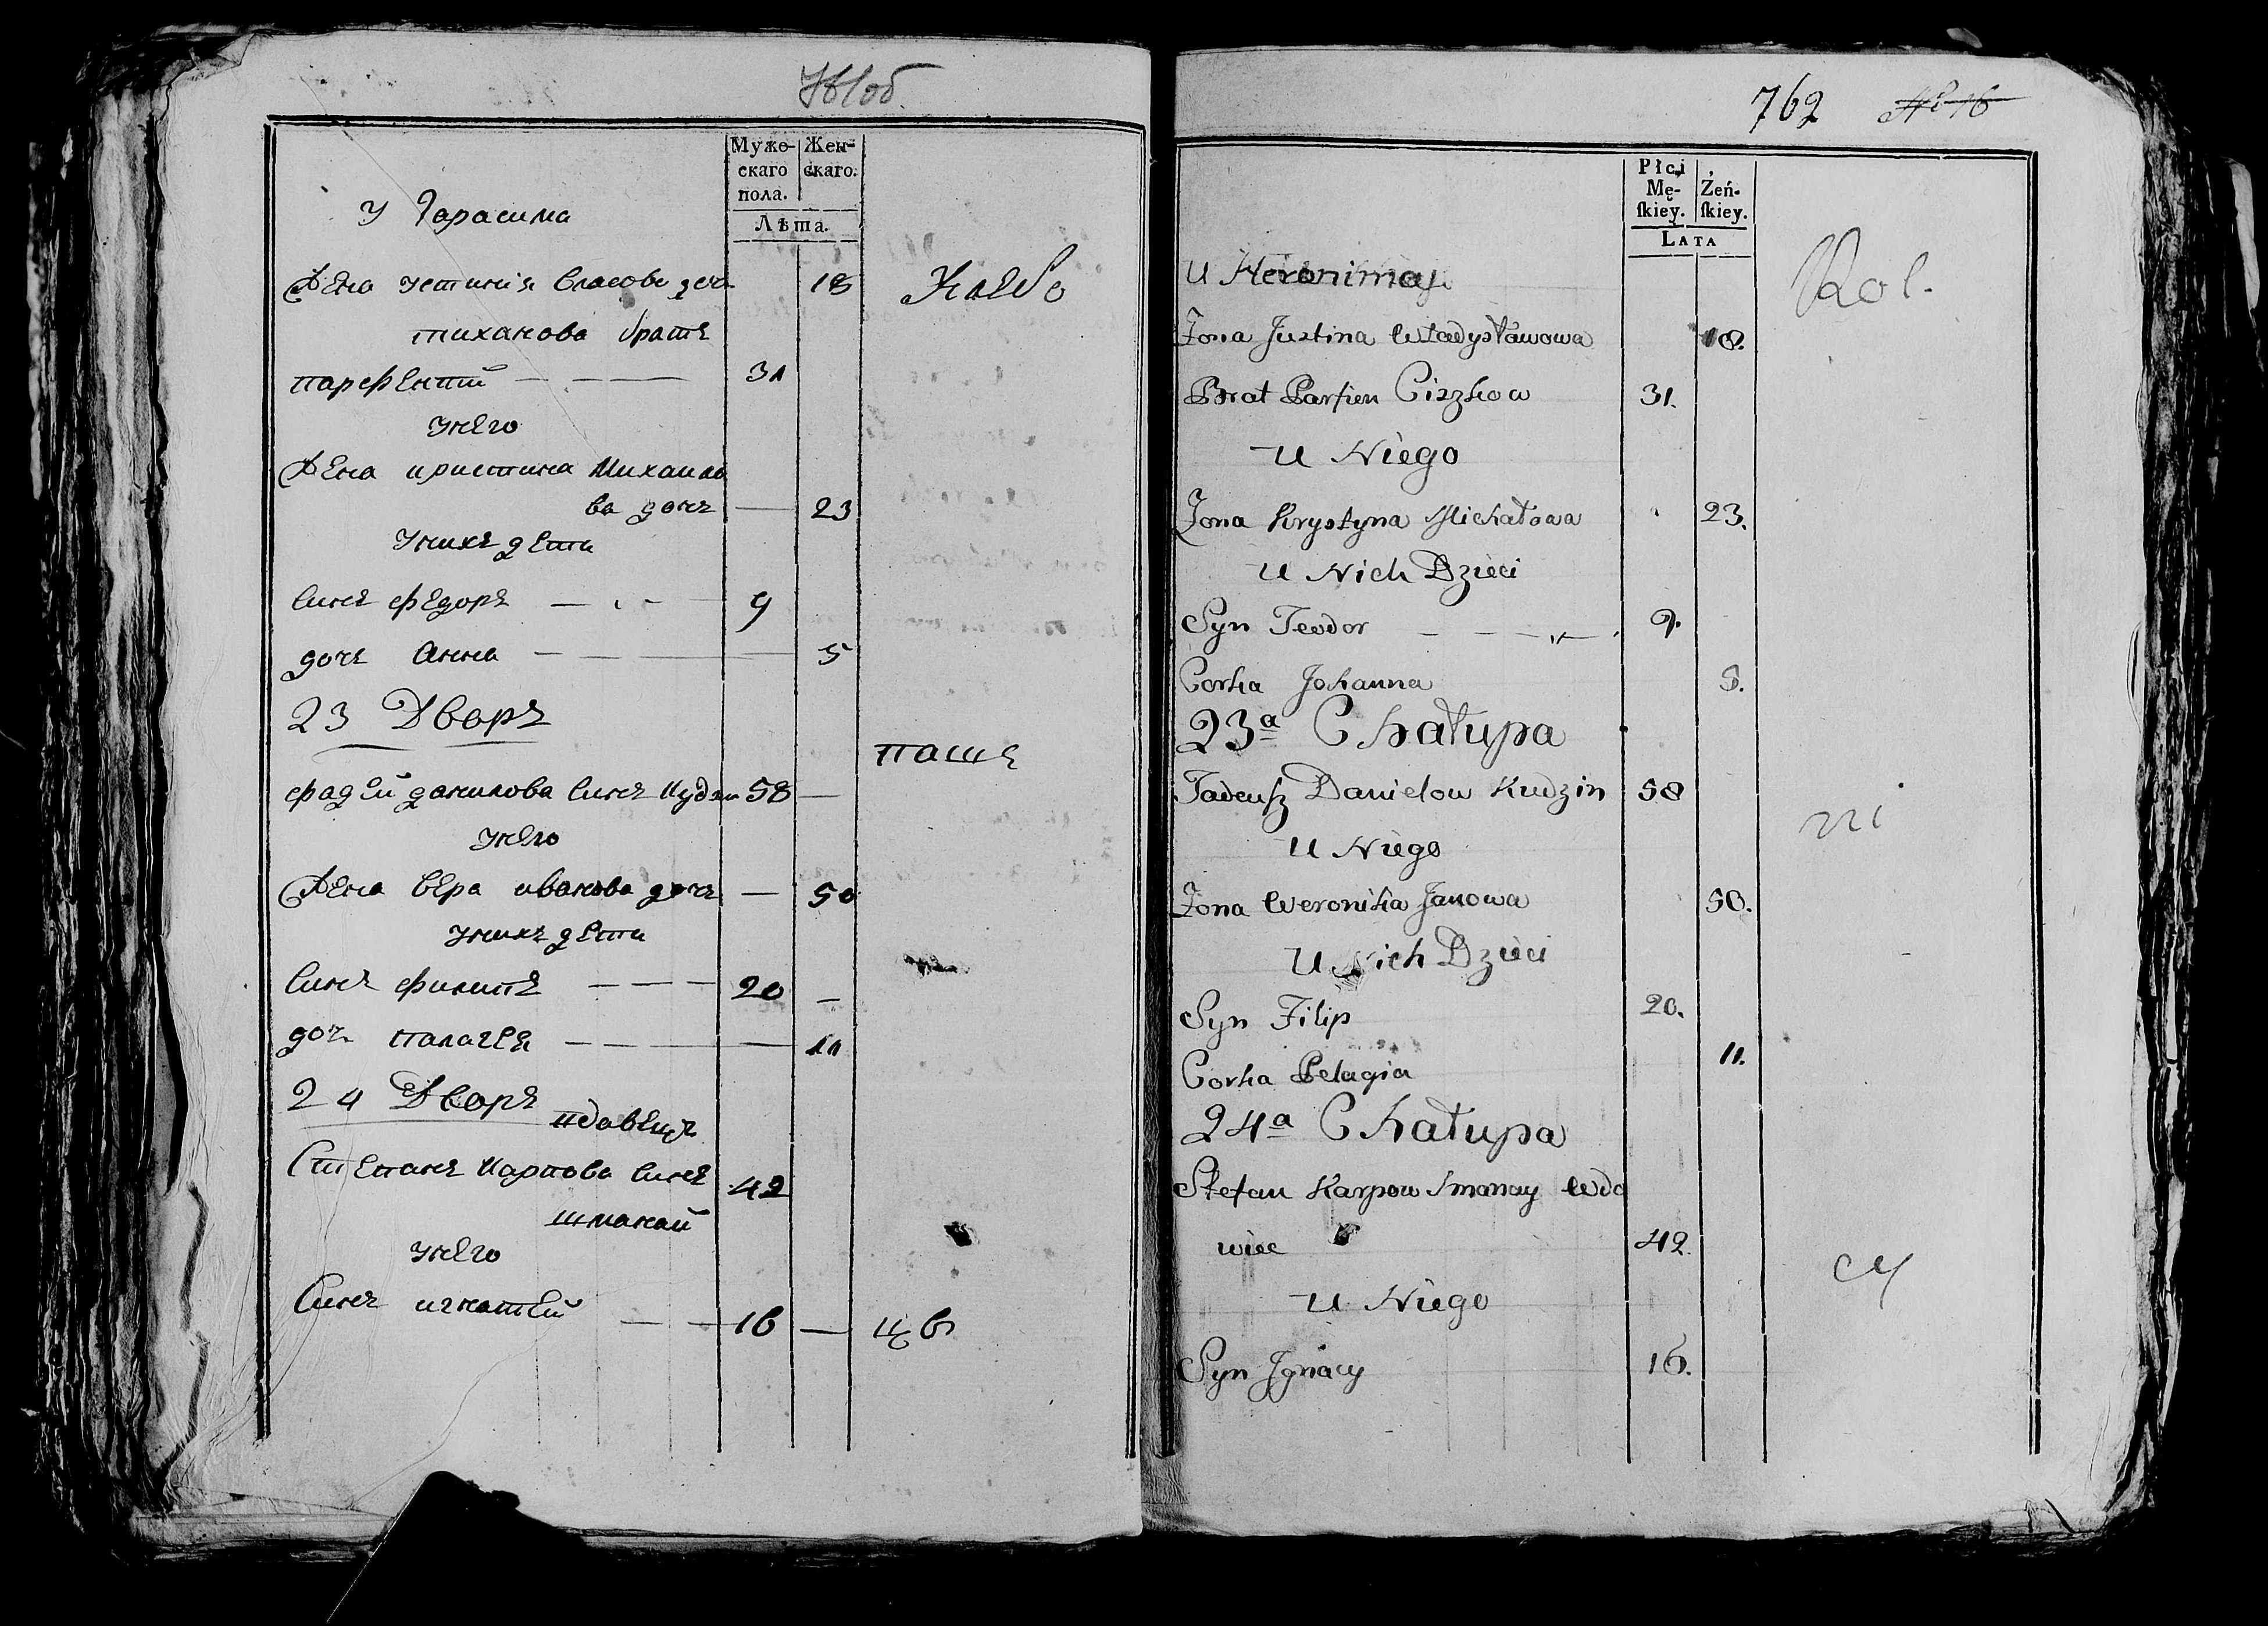 Мужескаго пола.
Женскаго.
Лѣта.
У Гарасима
Жена Устинія Власова доч 18
Тиханова братъ
Парфентій 31
У него
Жена Кристина Михаило
ва дочъ 23
У нихъ дети
Синъ Федоръ 9
дочъ Анна 5
23 Дворъ
паше
Фадей Данилова Синъ Кудзи 58
У него
Жена Вера иванова дочъ 50
У нихъ дети
Синъ Филипъ 20
доч Палагея 11
24 Дворъ
вдовецъ
Степанъ Карпова Синъ 42
Шманай
У него
Синъ игнатей 16
762 №16
Płci Mę-
ſkiey.
Żeń-
ſkiey.
LATA
U Heronima Kol.
Żona Justina Władysławowa 18.
Brat Parfien Ciszkow 31.
U Niego
Żona Krystyna Michałowa 23.
U Nich Dzieci
Syn Teodor 9.
Corka Johanna 5.
23a Chałupa
Tadeuſz Danielow Kudzin 58
U Niego
Żona Weronika Janowa 50.
U Nich Dzieci
Syn Filip 20.
Corka Pelagia 11.
24a Chałupa
Stefan Karpow Smanay Wdo
wiec 42.
U Niego
Syn Jgnacy 16.